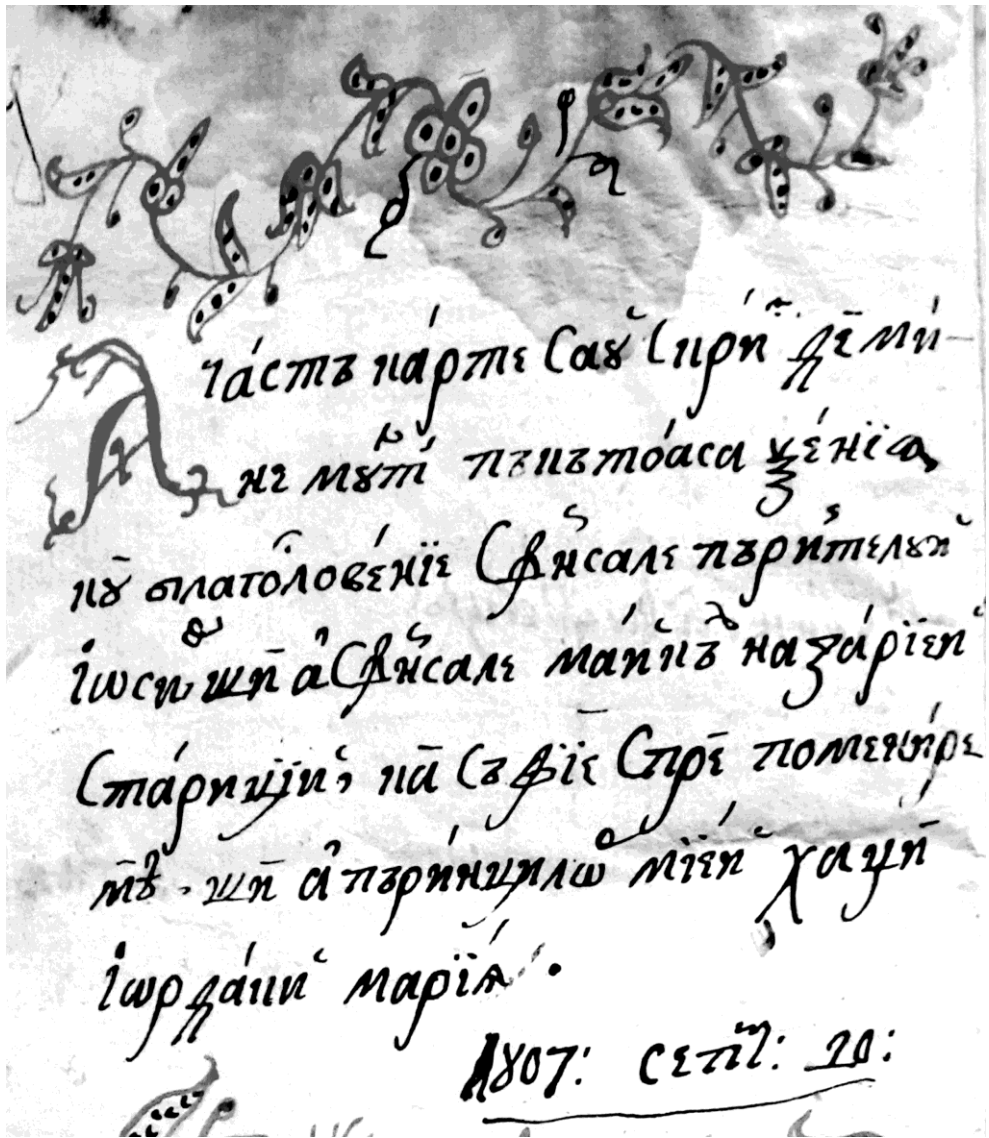 Аčастъ карте саꙋ скри́ й де ми-
не мꙋ́лт пъкъто́аса ѯе́нїа
кꙋ благослове́нїе сфи́нсале пъри́нтелꙋй
їѡси́ф, шѝ а сфи́нсале ма́йкъ наза́рїей
ста́рицїй, ка̀ съ фїе спрѐ помени́ре
мѣ, шѝ а пъри́нцилѡр мїе́й хаџи́
їѡрда́кй марї́а.
1807: септ: 20: